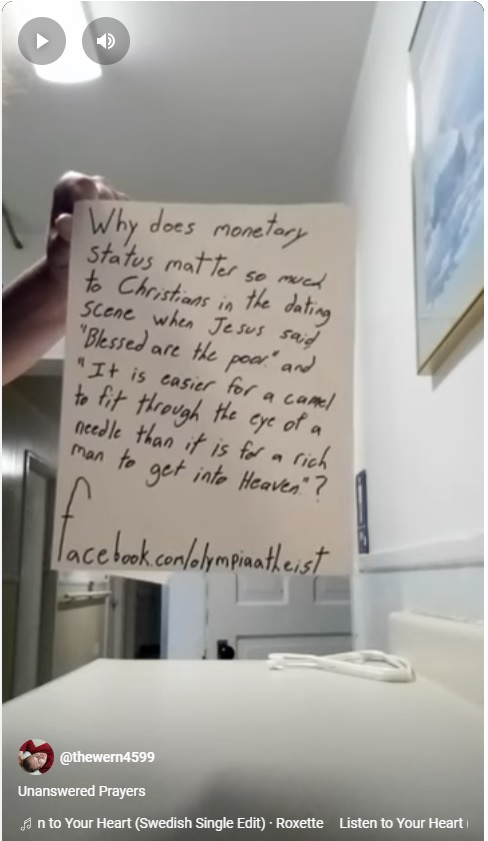 Why does monetary
status matter so much
to Christians in the dating
scene when Jesus said,
"Blessed are the poor." and
"It is easier for a camel
to fit through the eye of a
needle than it is for a rich
man to get into Heaven"?
facebook.com/olympiaatheist
@thewern4599
Unanswered Prayers
n to Your Heart (Swedish Single Edit) · Roxette Listen to Your Heart